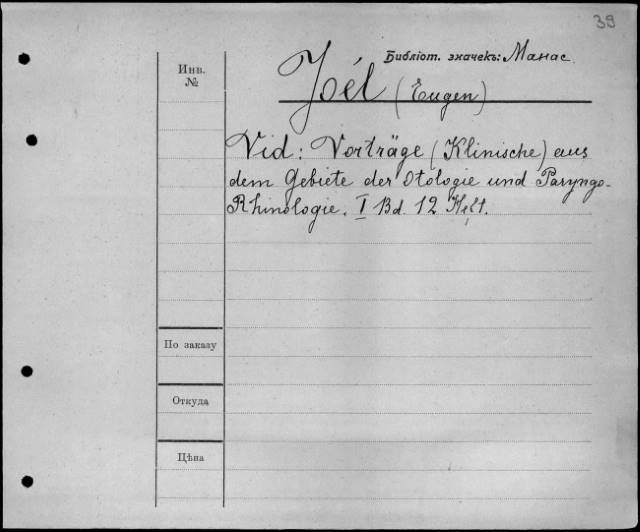 39
Библіот. значекъ: Манас.
Инв.
№
Joél (Eugen)
Vid: Vorträge (Klinische) aus
dem Gebiete der Otologie und Paryngo-
Rhinologie. I Bd. 12 Heft.
По заказу
Откуда
Цѣна